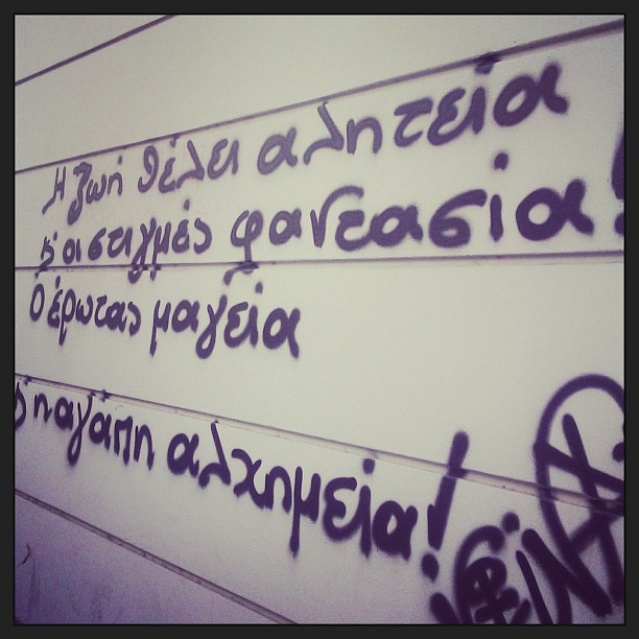 Η ζωή θέλει αλητεία
κ' οι στιγμές φαντασία!
Ο έρωτας μαγεία
κ' η αγάπη αλχημεία!